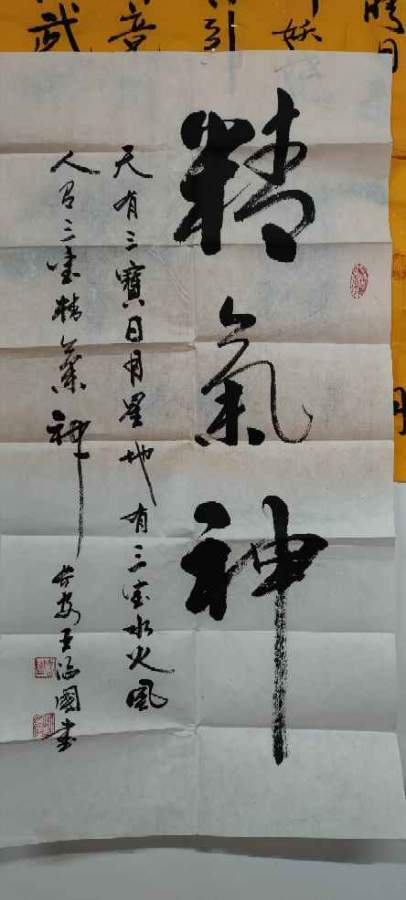 精氣神
天有三寶日月星地有三寶水火風
人有三寶精氣神 長安王海國書
妖
武